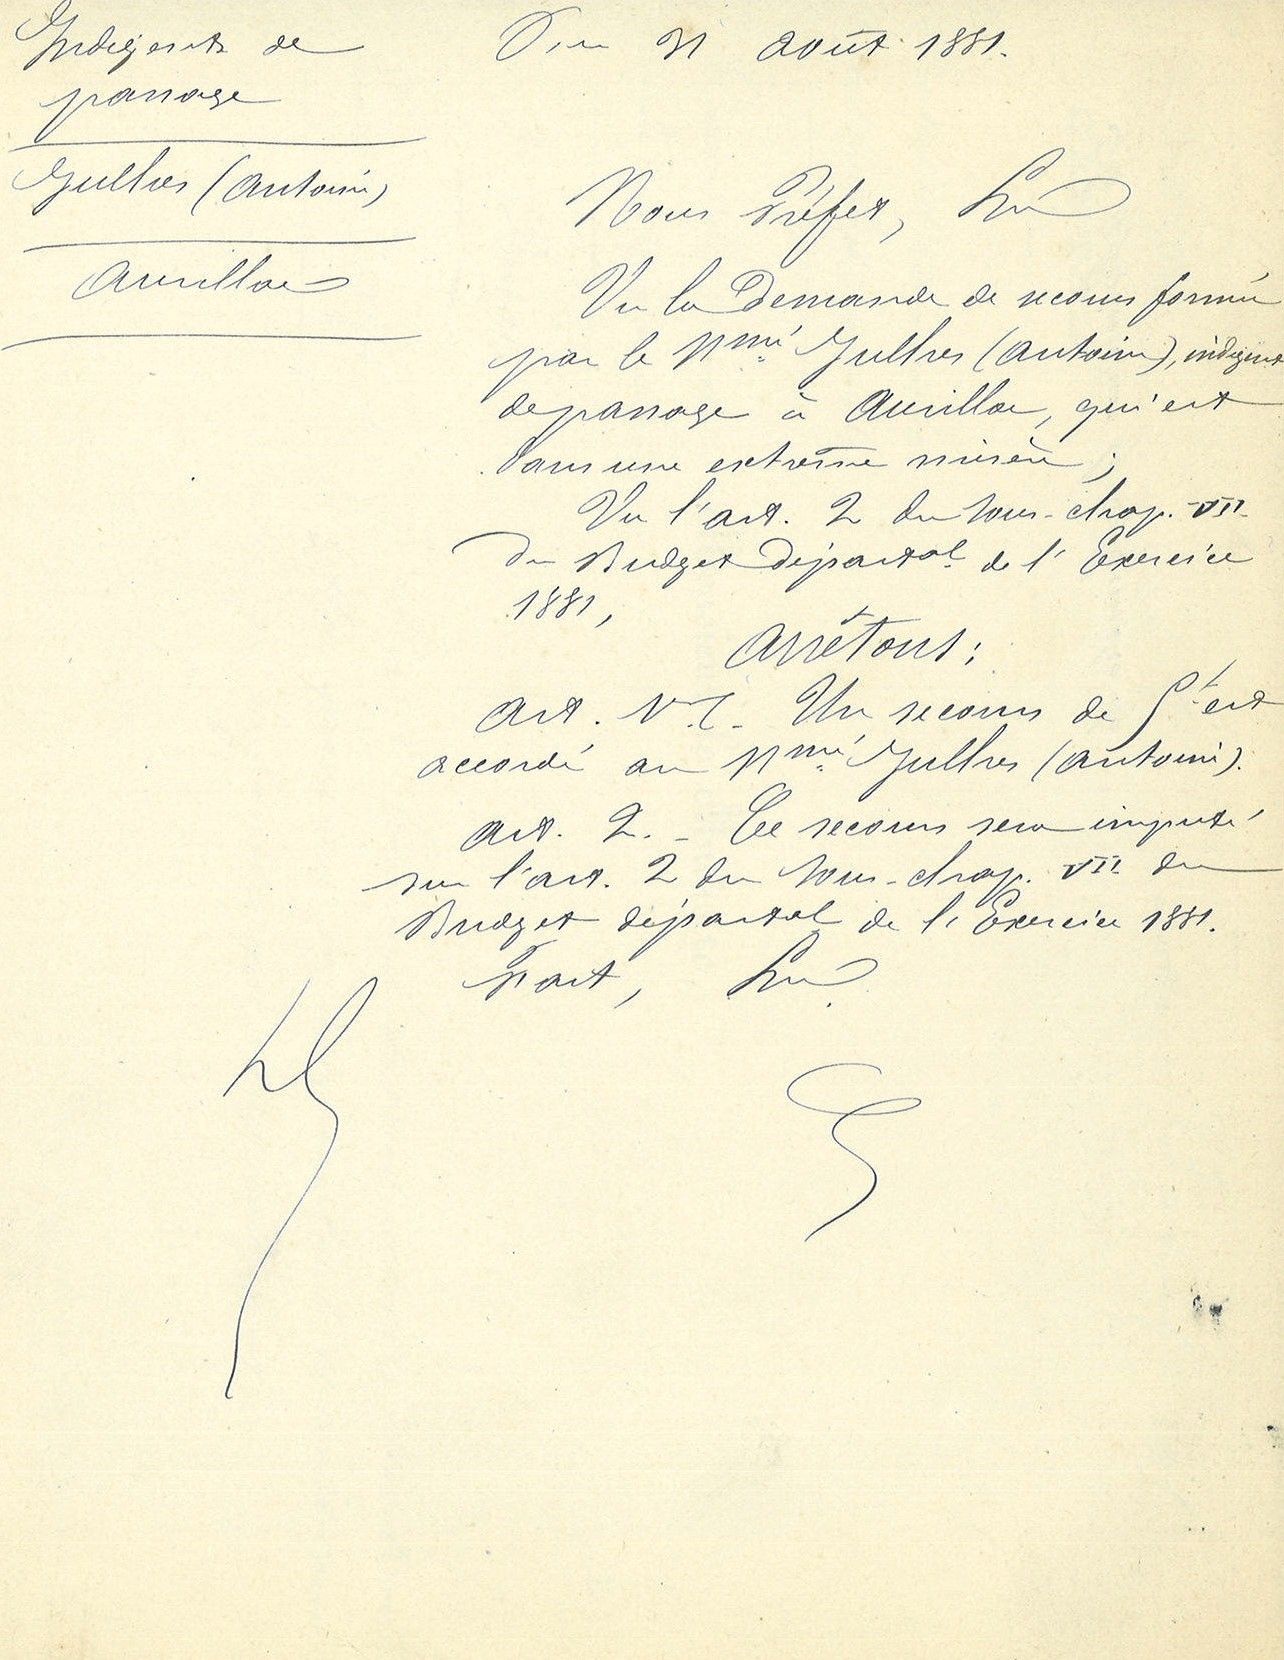 Indigents de
passage
Gulhes (Antoine)
Aurillac
Du 31 Août 1881.
Nous Préfet, &a
Vu la Demande de secours formée
par le Nmé Gulhes (Antoine), indigent
de passage à Aurillac, qui est
dans une extrême misère;
Vu l'art. 2 du sous-chap. VII
du Budget départal de l'Exercice
1881,
Arrêtons:
Art. 1er. Un secours de 5f est
accordé au Nmé Gulhes (Antoine).
Art. 2. - Ce secours sera imputé
sur l'art. 2 du sous-chap. VII du
Budget départal de l'Exercice 1881.
Fait, &a